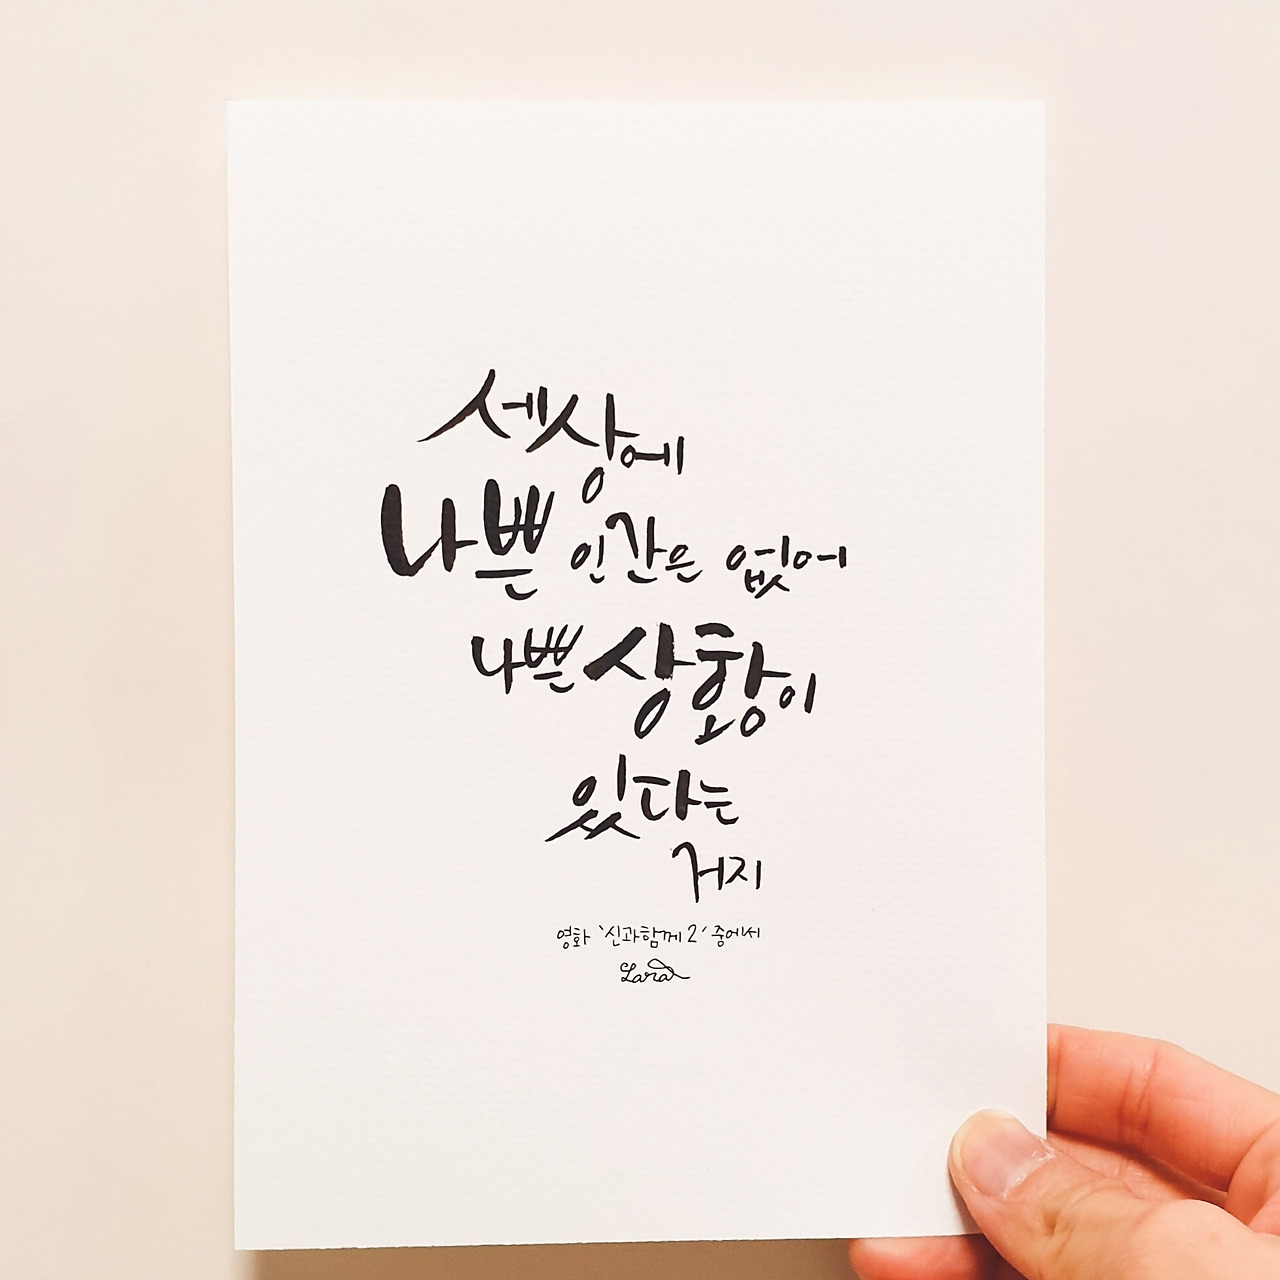 세상에
나쁜 인간은 없어
나쁜 상황이
있다는
거지
영화 '신과함께2' 중에서
Lara